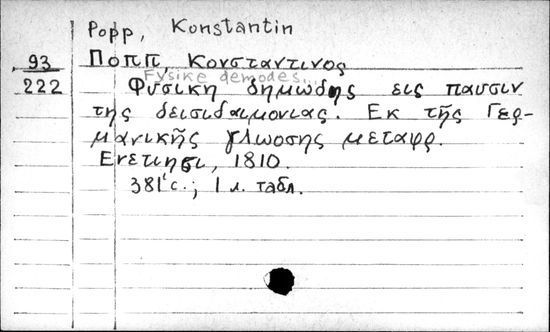 Popp, Konstantin
93 Ποππ, Κονσταντινος
Fysike demodes...
222 Φυσικη δημωδης εις παυσιν
της δεισιδαιμονιας. Εκ τῆς Γερ-
μανικῆς γλωσσης μεταφρ.
Ενετιησι, 1810.
381 с.; 1 л. табл.